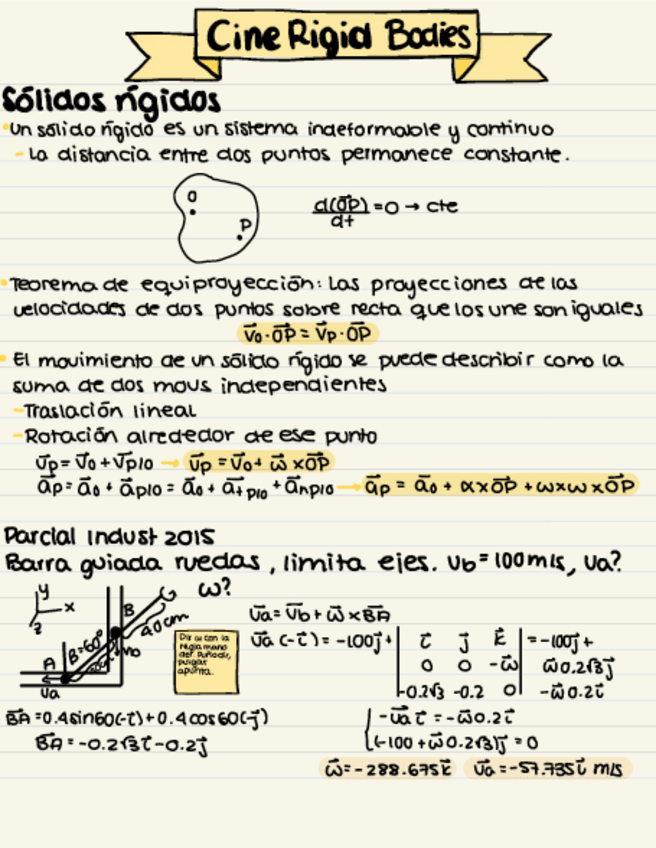 Cine Rigid Bodies
Sólidos rígidos
Un sólido rígido es un sistema indeformable y continuo
- La distancia entre dos puntos permanece constante.
O
P
d(OP)/dt = 0 → cte
Teorema de equiproyección: Las proyecciones de las
velocidades de dos puntos sobre recta que los une son iguales
v⃗o·OP⃗ = v⃗p·OP⃗
El movimiento de un sólido rígido se puede describir como la
suma de dos movs independientes
-Traslación lineal
-Rotación alrededor de ese punto
v⃗p = v⃗o + v⃗p/o → v⃗p = v⃗o + ω⃗ x OP⃗
a⃗p = a⃗o + a⃗p/o = a⃗o + a⃗t p/o + a⃗n p/o → a⃗p = a⃗o + α x OP⃗ + ω x ω x OP⃗
Parcial Indust 2015
Barra guiada ruedas, limita ejes. Vb = 100 m/s, Va?
ω?
y
x
z
B
40cm
A
B=60°
Va
V⃗a = V⃗b + ω⃗ x BA⃗
Dir ω con la
regla mano
der.
pulgar
apunta.
V⃗a (-i⃗) = -100j⃗ + | i⃗ j⃗ k⃗ | = -100j⃗ +
0 0 -ω⃗ ω⃗0.2√3j⃗
-0.2√3 -0.2 0 -ω⃗0.2i⃗
BA⃗ = 0.4sin60(-i⃗) + 0.4cos60(-j⃗)
BA⃗ = -0.2√3i⃗ - 0.2j⃗
-V⃗a i⃗ = -ω⃗0.2i⃗
(-100 + ω⃗0.2√3)j⃗ = 0
ω⃗ = -288.675k⃗ V⃗a = -57.735i⃗ m/s